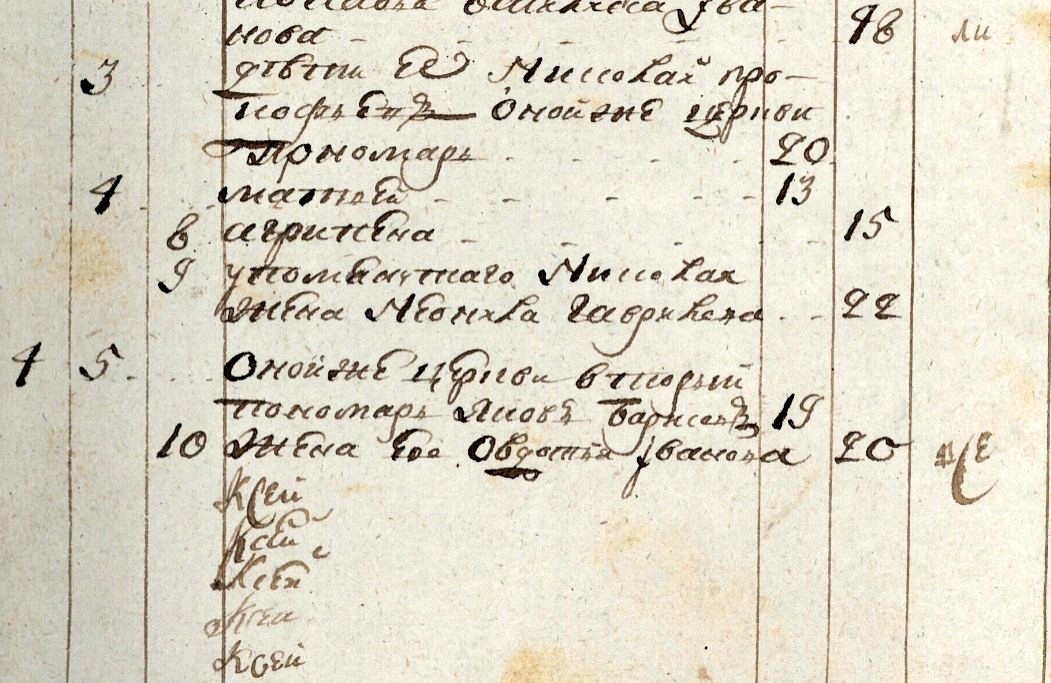 нова 48 ли
3 дѣти ее Николай про-
кофьевъ оной же церкви
пономарь 20
4 матвей 13
8 агрипена 15
9 упомянутаго Николая
жена Гаврилова 22
4 5 Оной же церкви вторый
пономарь Яковъ борисовъ 19
10 Жена ево Овдотья Iванова 20
Ксей
Ксей
Ксей
Ксей
Ксей